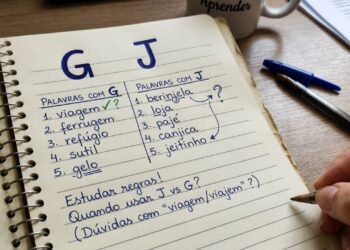 Aprender
G J
PALAVRAS COM G
1. viagem ✓?
2. ferrugem
3. refúgio
4. sutil
5. gelo
PALAVRAS COM J
1. berinjela
2. loja
3. pajé
4. canjica
5. jeitinho
?
Estudar regras!
Quando usar J vs G?
(Dúvidas com "viagem/viajem"?)